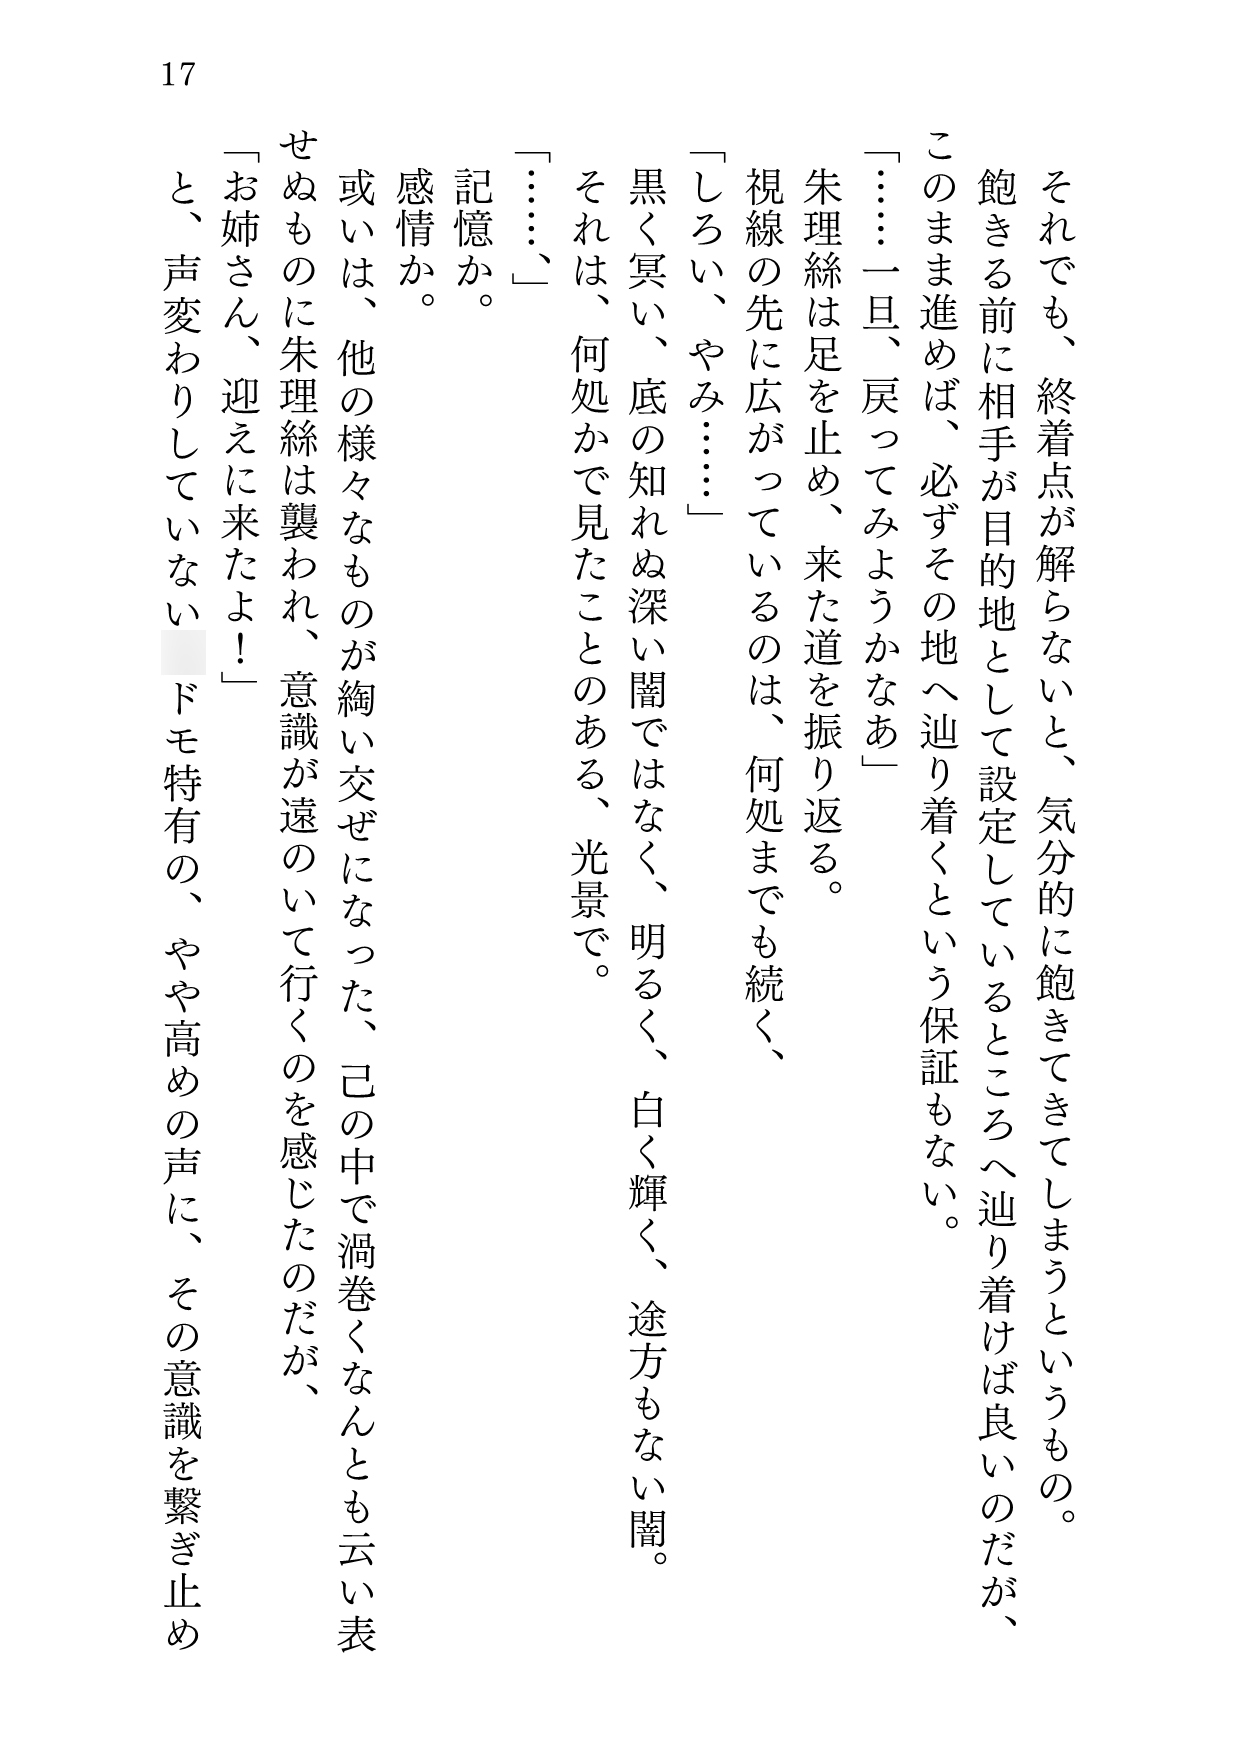 17
それでも、終着点が解らないと、気分的に飽きてきてしまうというもの。
飽きる前に相手が目的地として設定しているところへ辿り着けば良いのだが、
このまま進めば、必ずその地へ辿り着くという保証もない。
「……一旦、戻ってみようかなあ」
朱理絲は足を止め、来た道を振り返る。
視線の先に広がっているのは、何処までも続く、
「しろい、やみ……」
黒く冥い、底の知れぬ深い闇ではなく、明るく、白く輝く、途方もない闇。
それは、何処かで見たことのある、光景で。
「……、」
記憶か。
感情か。
或いは、他の様々なものが綯い交ぜになった、己の中で渦巻くなんとも云い表
せぬものに朱理絲は襲われ、意識が遠のいて行くのを感じたのだが、
「お姉さん、迎えに来たよ！」
と、声変わりしていないドモ特有の、やや高めの声に、その意識を繋ぎ止め